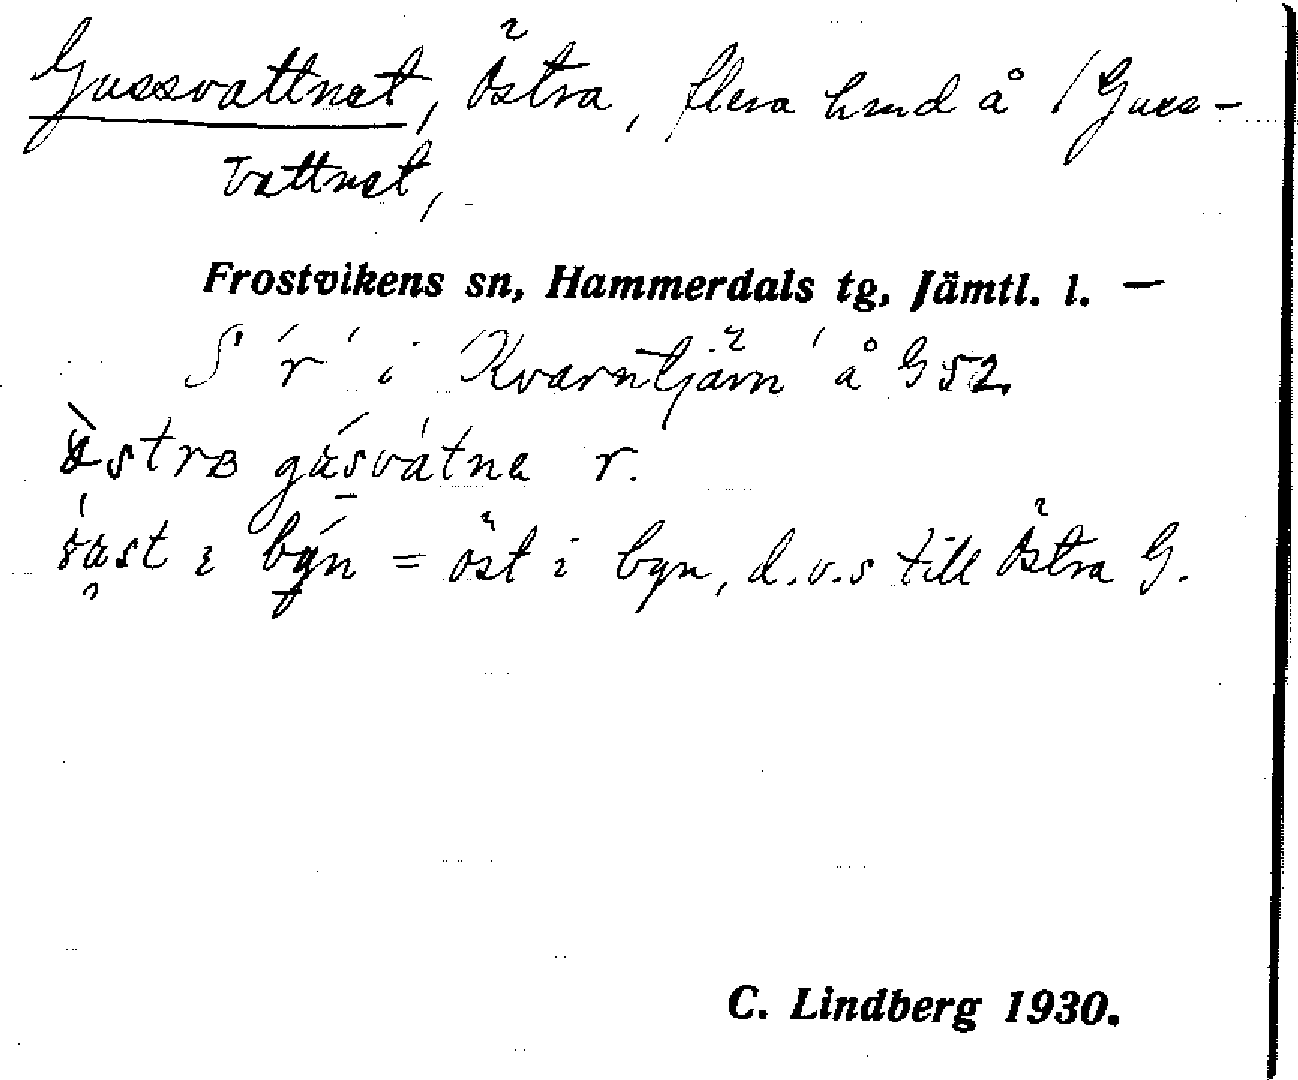 Gussvattnet, Östra, flera hmd å /Guss-
vattnet,
Frostvikens sn, Hammerdals tg, Jämtl. l. —
S 'r' i 'Kvarntjärn' å G 52.
gásvátna r.
i býn = öst i byn, d.v.s till Östra G.
C. Lindberg 1930.